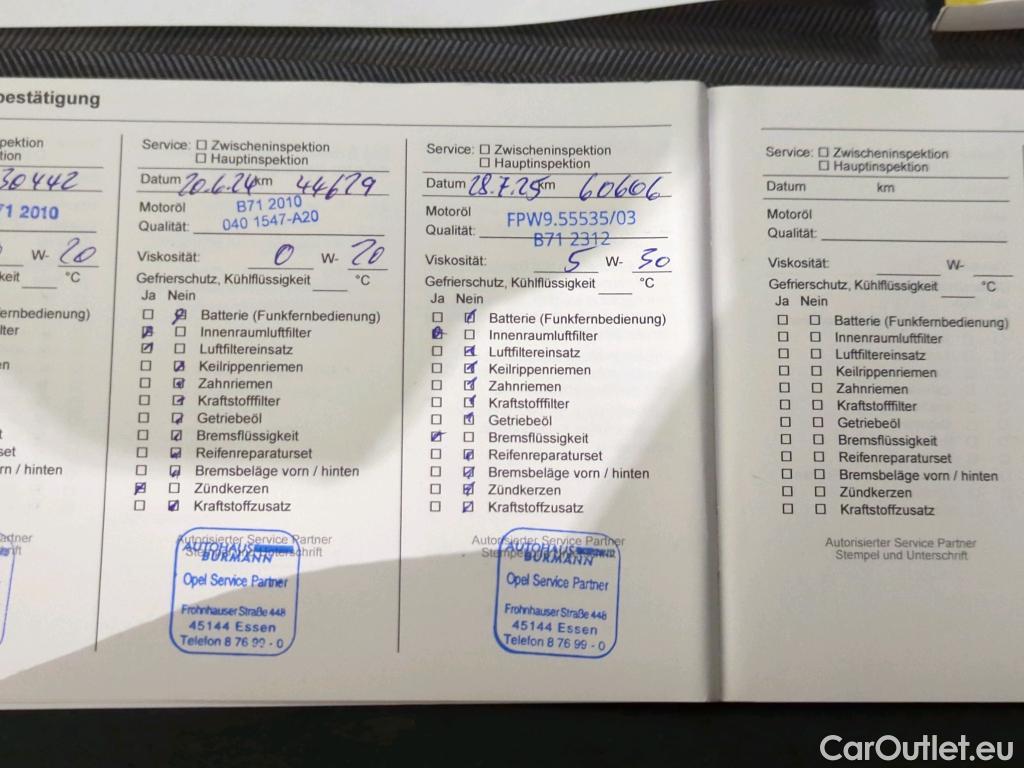 bestätigung
spektion
tion
30442
B71 2010
W- 20
keit °C
fernbedienung)
lter
en
t
set
rn / hinten
Service: Zwischeninspektion
Hauptinspektion
Datum 20.6.24 km 44679
Motoröl B71 2010
Qualität: 040 1547-A20
Viskosität: 0 W- 20
Gefrierschutz, Kühlflüssigkeit °C
Ja Nein
Batterie (Funkfernbedienung)
Innenraumluftfilter
Luftfiltereinsatz
Keilrippenriemen
Zahnriemen
Kraftstofffilter
Getriebeöl
Bremsflüssigkeit
Reifenreparaturset
Bremsbeläge vorn / hinten
Zündkerzen
Kraftstoffzusatz
Autorisierter Service Partner
Stempel und Unterschrift
AUTOHAUS
BURMANN
Opel Service Partner
Frohnhauser Straße 448
45144 Essen
Telefon 8 76 99 - 0
Service: Zwischeninspektion
Hauptinspektion
Datum 28.7.25 km 60606
Motoröl FPW9.55535/03
Qualität: B71 2312
Viskosität: 5 W- 30
Gefrierschutz, Kühlflüssigkeit °C
Ja Nein
Batterie (Funkfernbedienung)
Innenraumluftfilter
Luftfiltereinsatz
Keilrippenriemen
Zahnriemen
Kraftstofffilter
Getriebeöl
Bremsflüssigkeit
Reifenreparaturset
Bremsbeläge vorn / hinten
Zündkerzen
Kraftstoffzusatz
Autorisierter Service Partner
Stempel und Unterschrift
AUTOHAUS
BURMANN
Opel Service Partner
Frohnhauser Straße 448
45144 Essen
Telefon 8 76 99 - 0
Service: Zwischeninspektion
Hauptinspektion
Datum km
Motoröl
Qualität:
Viskosität: W-
Gefrierschutz, Kühlflüssigkeit °C
Ja Nein
Batterie (Funkfernbedienung)
Innenraumluftfilter
Luftfiltereinsatz
Keilrippenriemen
Zahnriemen
Kraftstofffilter
Getriebeöl
Bremsflüssigkeit
Reifenreparaturset
Bremsbeläge vorn / hinten
Zündkerzen
Kraftstoffzusatz
Autorisierter Service Partner
Stempel und Unterschrift
CarOutlet.eu